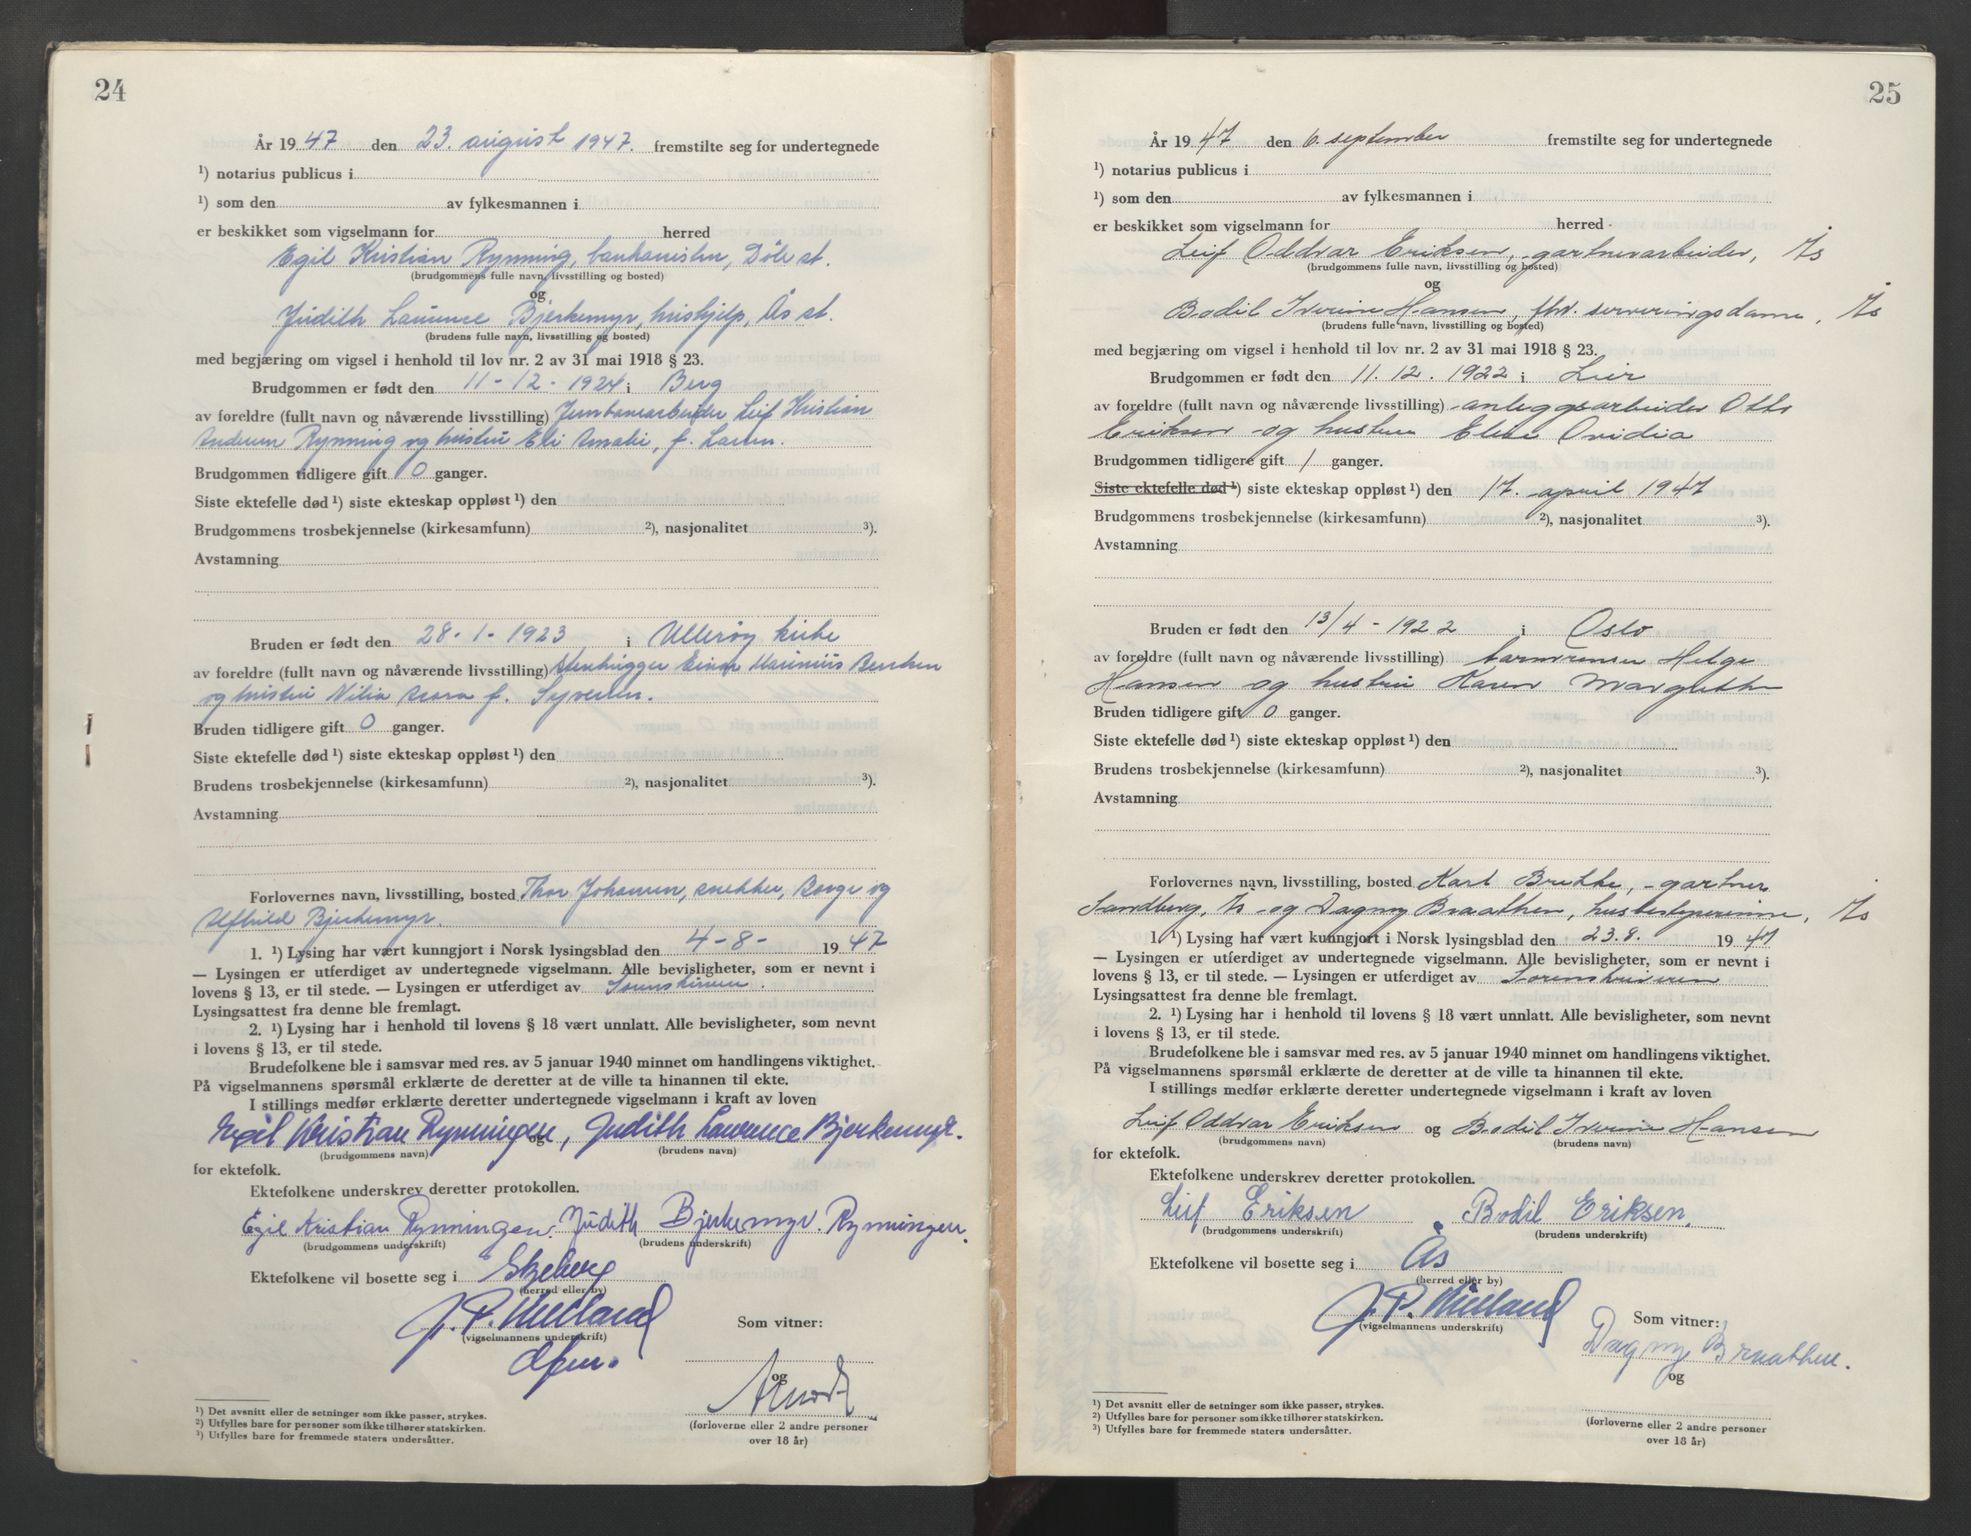 24
År 1947 den 23. august 1947. fremstilte seg for undertegnede
¹) notarius publicus i
¹) som den av fylkesmannen i
er beskikket som vigselmann for herred
Egil Kristian Rynning, Døle st.
(brudgommens fulle navn, livsstilling og bosted)
og
Judith Laurence Bjerkemyr, hushjelp, Ås st.
(brudens fulle navn, livsstilling og bosted)
med begjæring om vigsel i henhold til lov nr. 2 av 31 mai 1918 § 23.
Brudgommen er født den 11-12-1924 i Berg
av foreldre (fullt navn og nåværende livsstilling) Jernbanearbeider Leif Kristian
Andersen Rynning og hustru Eli Amalie, f. Larsen.
Brudgommen tidligere gift 0 ganger.
Siste ektefelle død ¹) siste ekteskap oppløst ¹) den
Brudgommens trosbekjennelse (kirkesamfunn) ²), nasjonalitet ³).
Avstamning
Bruden er født den 28-1-1923 i Ullerøy kirke
av foreldre (fullt navn og nåværende livsstilling) Stenhugger Einar Marinius Berntsen
og hustru f. Syversen.
Bruden tidligere gift 0 ganger.
Siste ektefelle død ¹) siste ekteskap oppløst ¹) den
Brudens trosbekjennelse (kirkesamfunn) ²), nasjonalitet ³).
Avstamning
Forlovernes navn, livsstilling, bosted Thor Johansen, snekker, Borge og
Alfhild Bjerkemyr.
1. ¹) Lysing har vært kunngjort i Norsk lysingsblad den 4-8- 1947
— Lysingen er utferdiget av undertegnede vigselmann. Alle bevisligheter, som er nevnt i
lovens § 13, er til stede. — Lysingen er utferdiget av Sorenskriveren.
Lysingsattest fra denne ble fremlagt.
2. ¹) Lysing har i henhold til lovens § 18 vært unnlatt. Alle bevisligheter, som nevnt
i lovens § 13, er til stede.
Brudefolkene ble i samsvar med res. av 5 januar 1940 minnet om handlingens viktighet.
På vigselmannens spørsmål erklærte de deretter at de ville ta hinannen til ekte.
I stillings medfør erklærte deretter undertegnede vigselmann i kraft av loven
Egil Kristian Rynningen, og Judith Lawrence Bjerkemyr.
(brudgommens navn) (brudens navn)
for ektefolk.
Ektefolkene underskrev deretter protokollen.
Egil Kristian Rynningen. Judith Bjerkemyr. Rynningen.
(brudgommens underskrift) (brudens underskrift)
Ektefolkene vil bosette seg i Skjeberg
(herred eller by)
J. P. Midland
(vigselmannens underskrift)
Som vitner:
og
(forloverne eller 2 andre personer
over 18 år)
¹) Det avsnitt eller de setninger som ikke passer, strykes.
²) Utfylles bare for personer som ikke tilhører statskirken.
³) Utfylles bare for fremmede staters undersåtter.
25
År 1947 den 6. september fremstilte seg for undertegnede
¹) notarius publicus i
¹) som den av fylkesmannen i
er beskikket som vigselmann for herred
Leif Oddvar Eriksen, gartnerarbeider, Ås
(brudgommens fulle navn, livsstilling og bosted)
og
Bodil Iverine Hansen, fhv. serveringsdame, Ås
(brudens fulle navn, livsstilling og bosted)
med begjæring om vigsel i henhold til lov nr. 2 av 31 mai 1918 § 23.
Brudgommen er født den 11.12.1922 i Lier
av foreldre (fullt navn og nåværende livsstilling) anleggsarbeider Otto
Eriksen og hustru Elise Ovidia
Brudgommen tidligere gift 1 ganger.
Siste ektefelle død ¹) siste ekteskap oppløst ¹) den 17. april 1947
Brudgommens trosbekjennelse (kirkesamfunn) ²), nasjonalitet ³).
Avstamning
Bruden er født den 13/4-1922 i Oslo
av foreldre (fullt navn og nåværende livsstilling) Helge
Hansen og hustru Karen Margrethe
Bruden tidligere gift 0 ganger.
Siste ektefelle død ¹) siste ekteskap oppløst ¹) den
Brudens trosbekjennelse (kirkesamfunn) ²), nasjonalitet ³).
Avstamning
Forlovernes navn, livsstilling, bosted Karl Brekke, gartner
Sandberg, Ås og Dagny Braathen, husbestyrerinne, Ås
1. ¹) Lysing har vært kunngjort i Norsk lysingsblad den 23.8. 1947
— Lysingen er utferdiget av undertegnede vigselmann. Alle bevisligheter, som er nevnt i
lovens § 13, er til stede. — Lysingen er utferdiget av Sorenskriveren
Lysingsattest fra denne ble fremlagt.
2. ¹) Lysing har i henhold til lovens § 18 vært unnlatt. Alle bevisligheter, som nevnt
i lovens § 13, er til stede.
Brudefolkene ble i samsvar med res. av 5 januar 1940 minnet om handlingens viktighet.
På vigselmannens spørsmål erklærte de deretter at de ville ta hinannen til ekte.
I stillings medfør erklærte deretter undertegnede vigselmann i kraft av loven
Leif Oddvar Eriksen og Bodil Iverine Hansen
(brudgommens navn) (brudens navn)
for ektefolk.
Ektefolkene underskrev deretter protokollen.
Leif Eriksen Bodil Eriksen.
(brudgommens underskrift) (brudens underskrift)
Ektefolkene vil bosette seg i Ås
(herred eller by)
J. P. Midland
(vigselmannens underskrift)
Som vitner:
Dagny Braathen.
og
(forloverne eller 2 andre personer
over 18 år)
¹) Det avsnitt eller de setninger som ikke passer, strykes.
²) Utfylles bare for personer som ikke tilhører statskirken.
³) Utfylles bare for fremmede staters undersåtter.